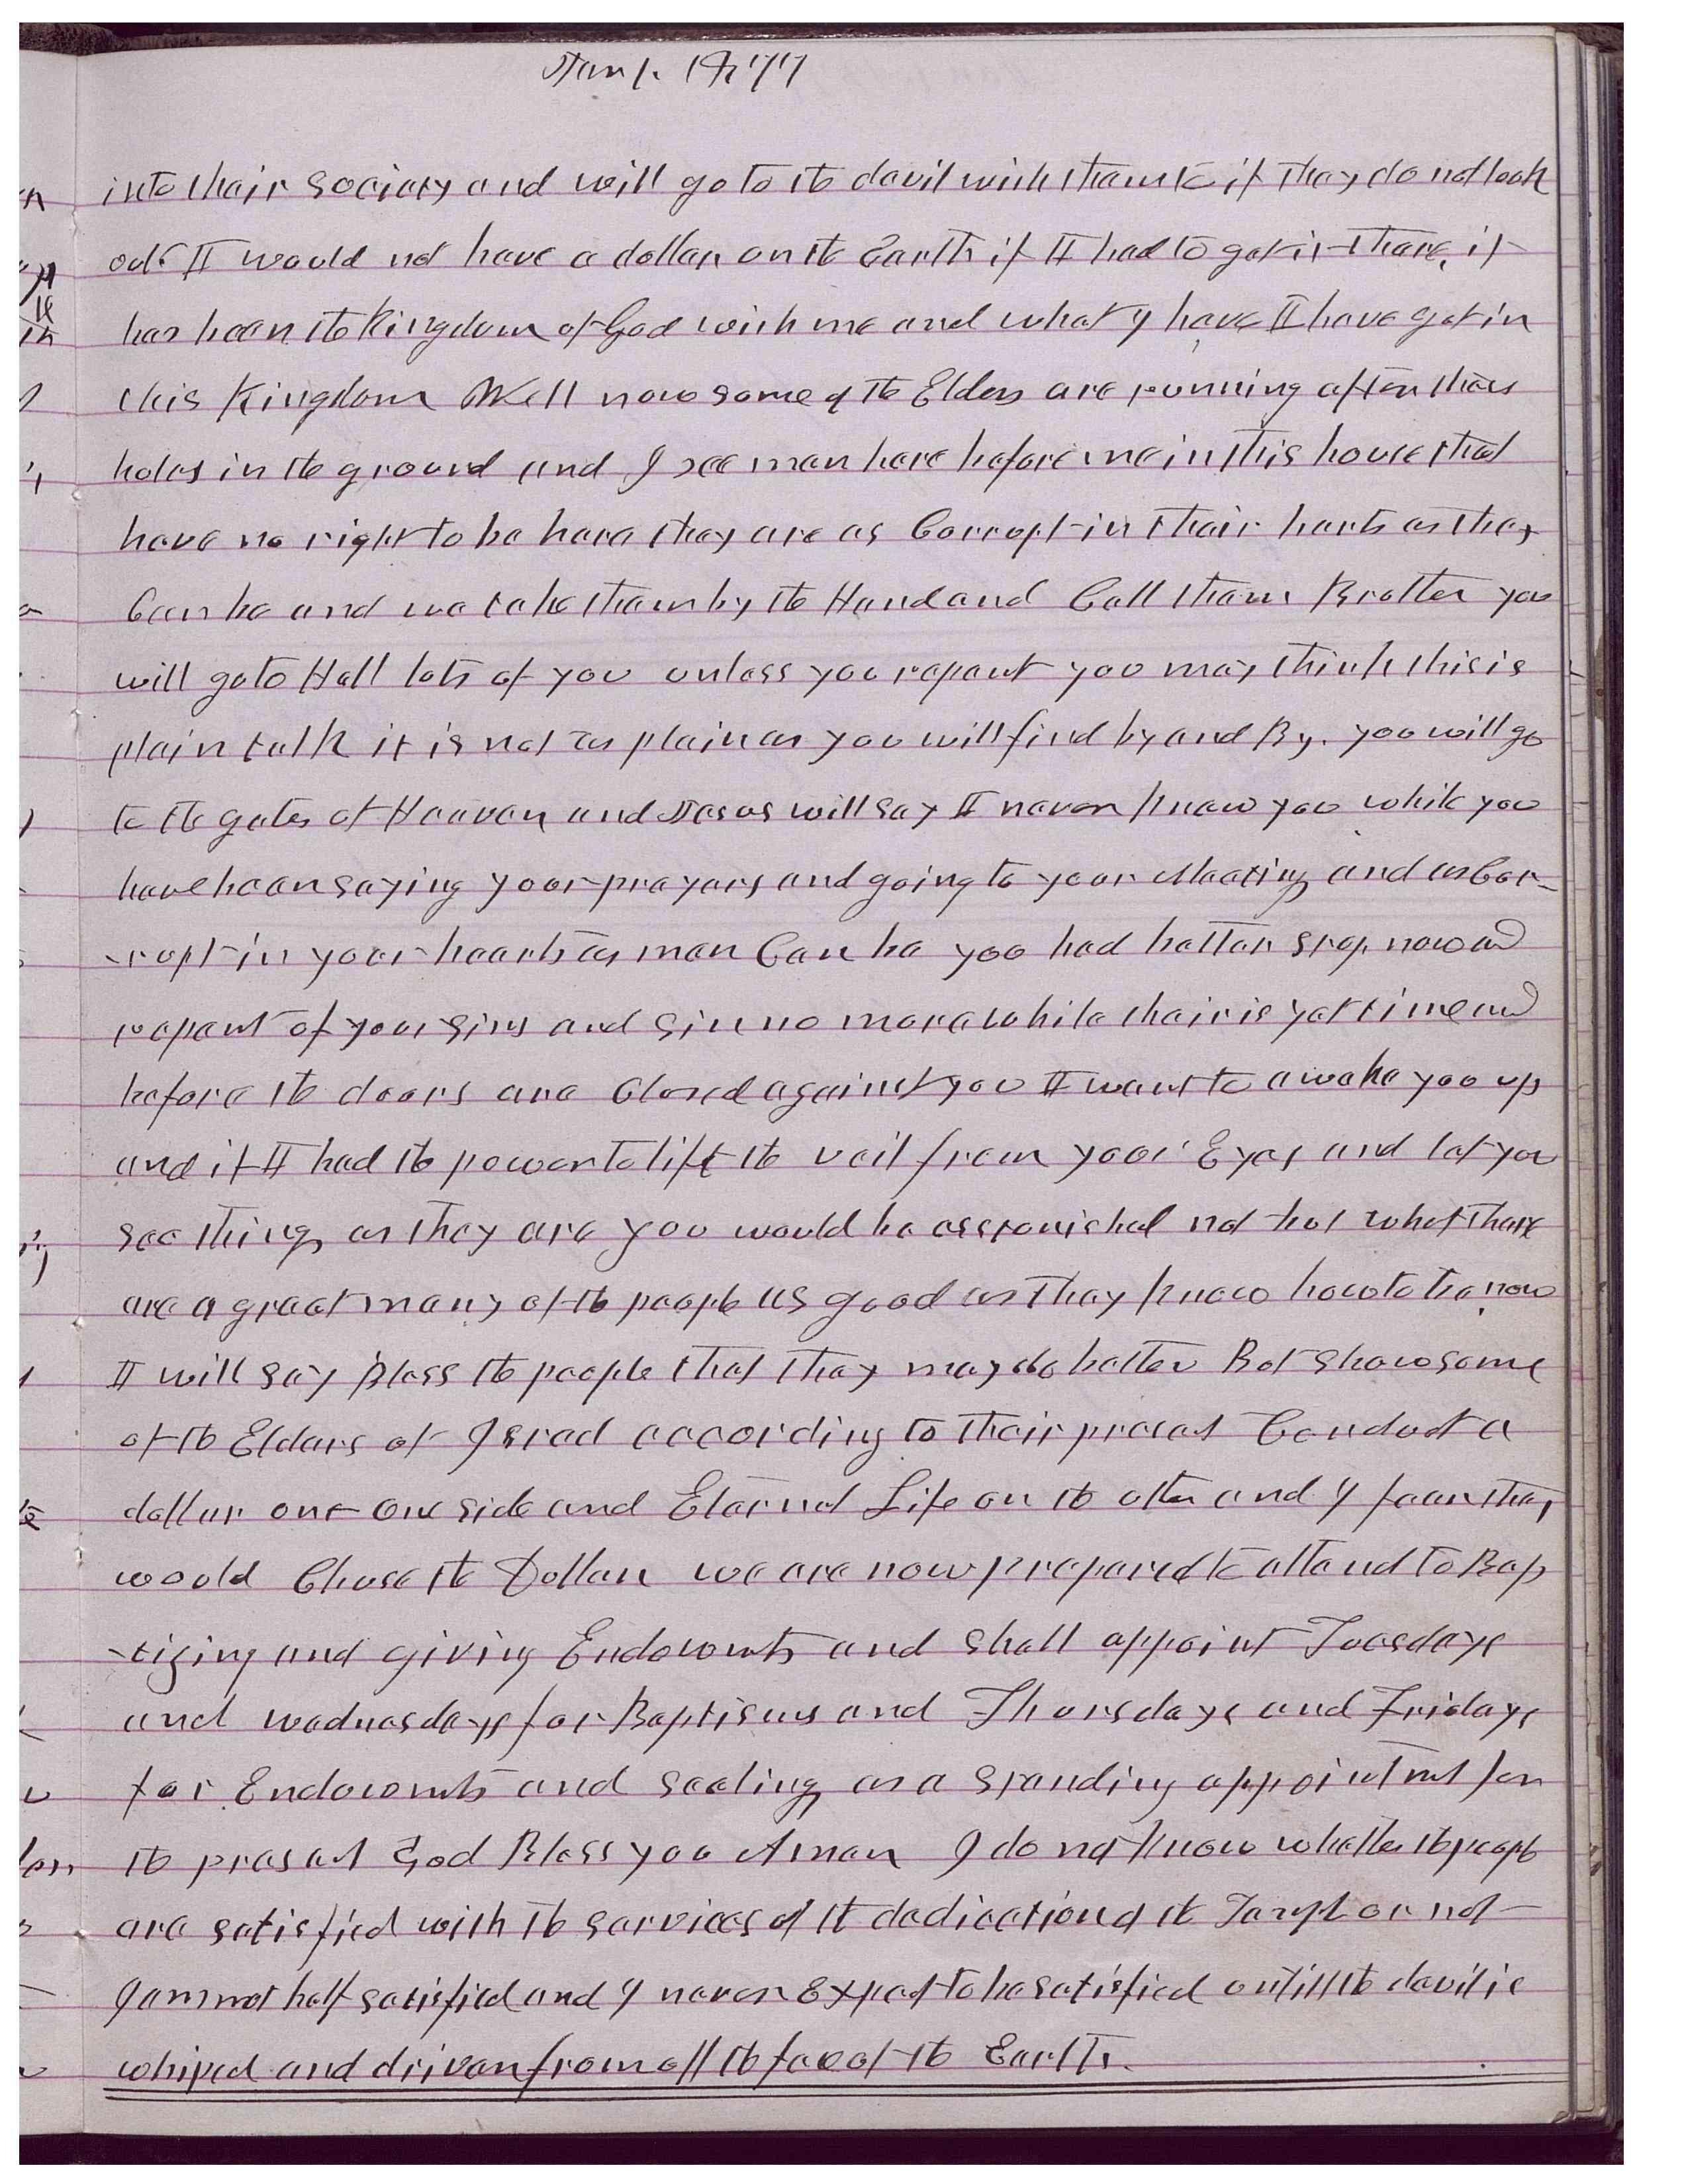 Jan 1. 1877
into thair Society and will go to the devil with them if they do not look
out I would not have a dollar on the Earth if I had to get it there, it
has been the Kingdom of God with me and what I have I have got in
this Kingdom Well now some of the Elders are running after thes
holes in the ground and I see men here before me in this house that
have no right to be here they are as Corrupt in thair harts as they
Can be and we take them by the Hand and Call them Brother you
will go to Hell lots of you unless you repent you may think this is
plain talk it is not as plain as you will find by and By. you will go
to the gates of Heaven and Jesus will say I never knew you while you
have been saying your prayers and going to your Meetings and as Cor-
-rupt in your hearts as men Can be you had better stop now and
repent of your sins and sin no more while thair is yet time and
before the doors are Closed against you I want to awake you up
and if I had the power to lift the veil from your Eyes and let you
see things as they are you would be asstonished not but what there
are a great many of the people as good as they know how to be now
I will say Bless the people that they may do better But show some
of the Elders of Israel according to their presant Conduct a
dollar ont one side and Eternal Life on the other and I fear they
would Chuse the Dollar we are now prepared to attend to Bap
-tizing and giving Endowmts and shall appoint Tuesdays
and wednesdays for Baptisms and Thursdays and Fridays
for Endowmts and sealings as a standing appointmt for
the present God Bless you Amen I do not know whether the people
are satisfied with the services of the dedication of the Temple or not
I am not half satisfied and I never Expect to be satisfied untill the devil is
whiped and driven from off the face of the Earth.